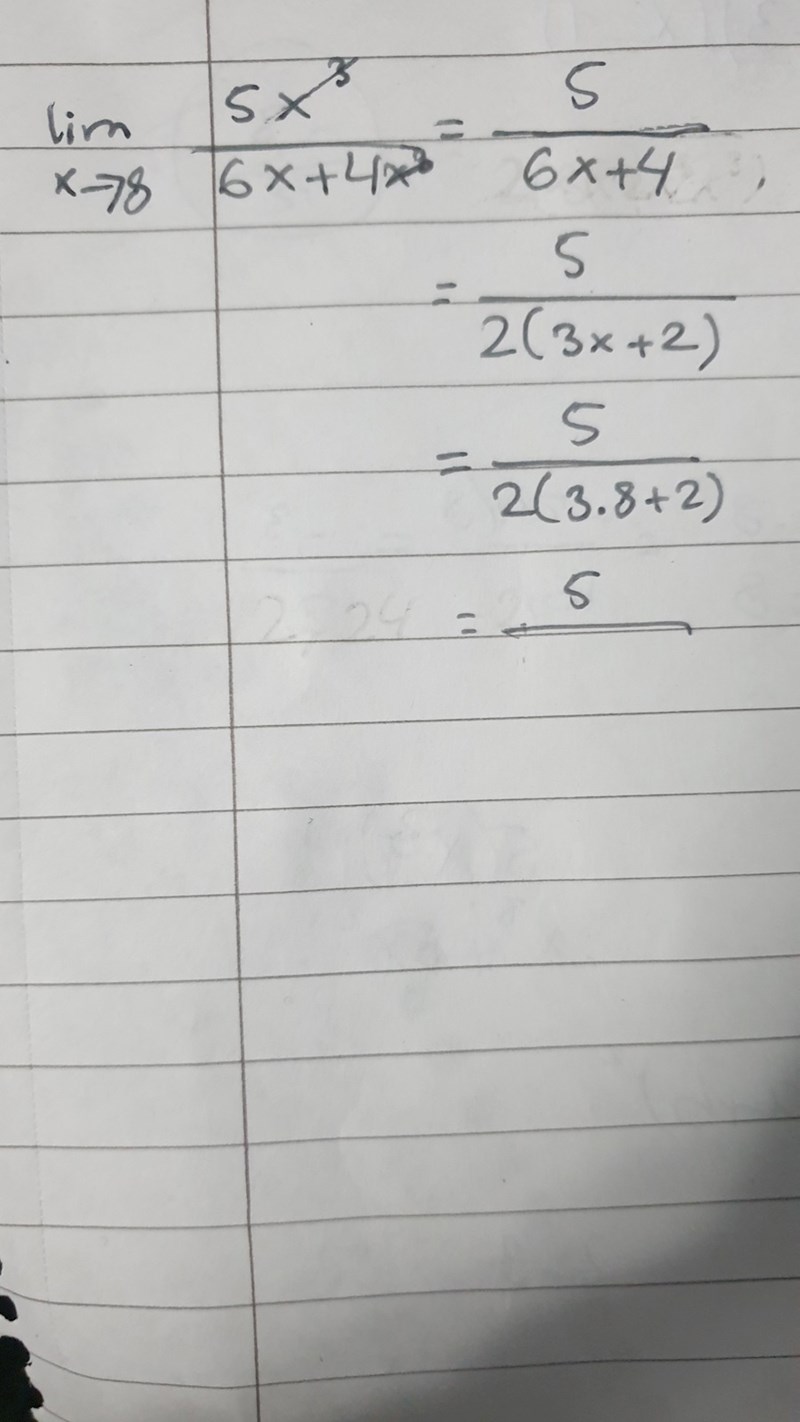 lim x→8 5x³/6x+4x³ = 5/6x+4,
= 5/2(3x+2)
= 5/2(3.8+2)
= 5/